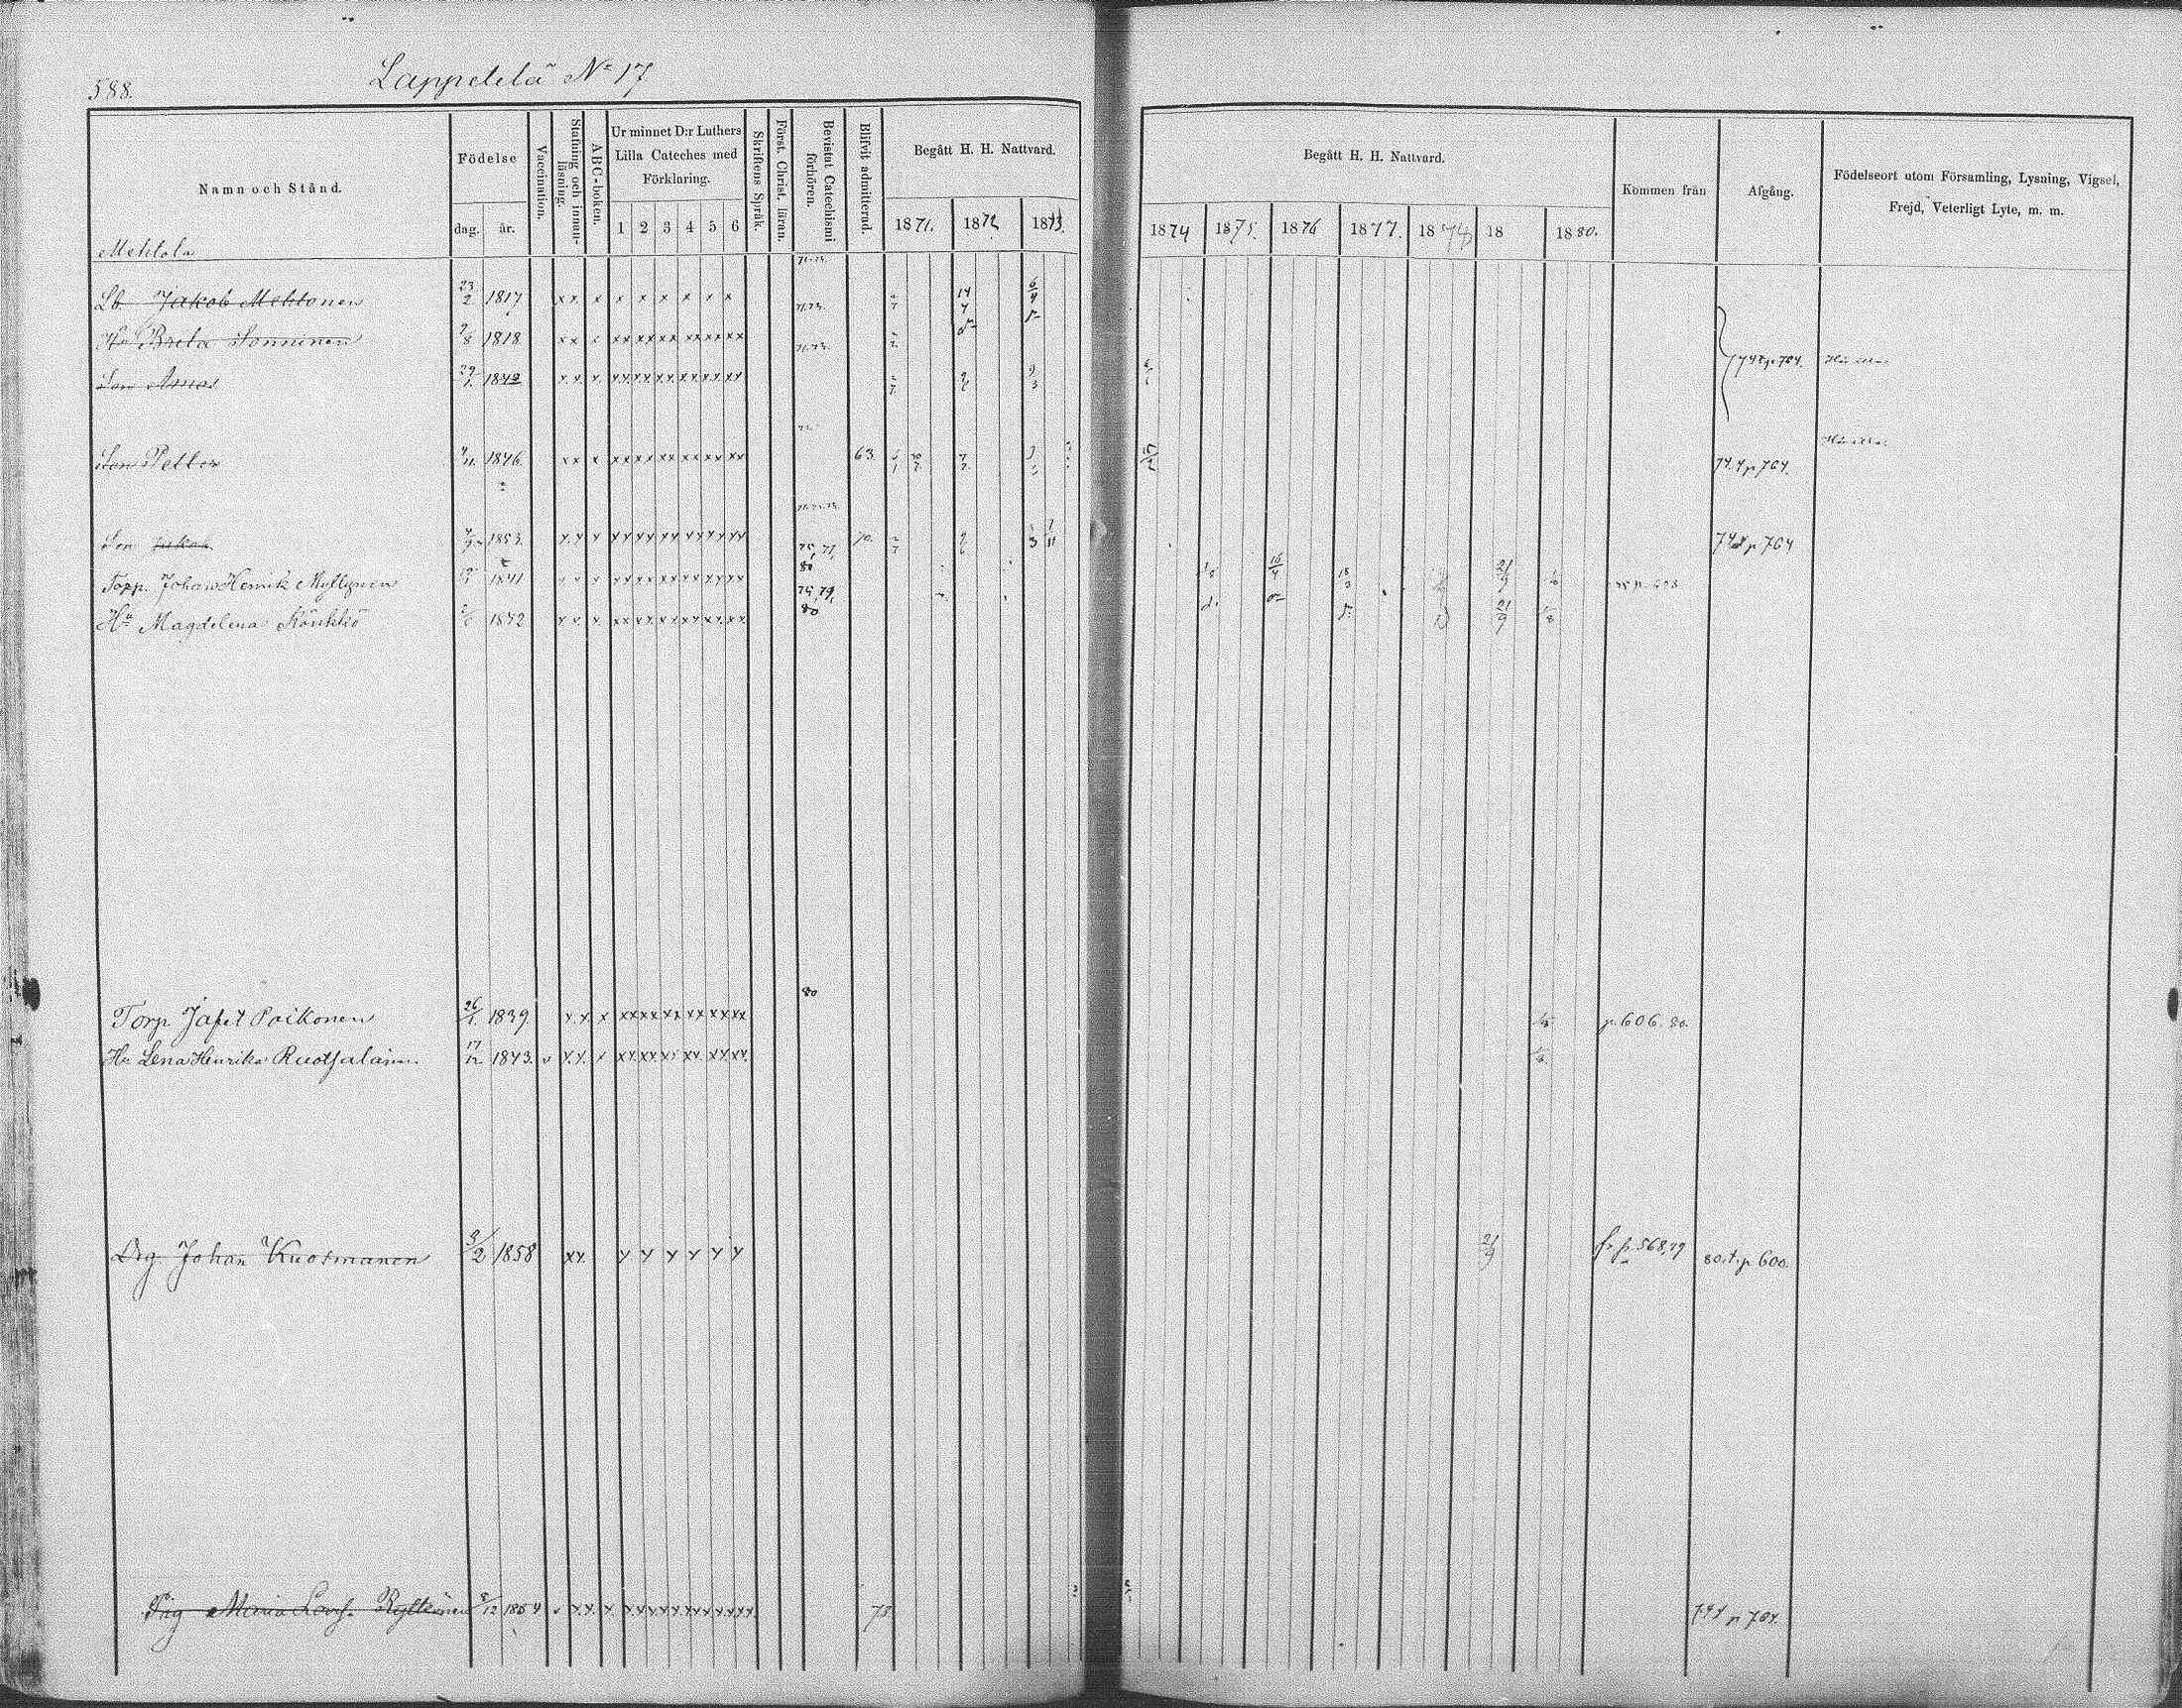 588.
Lappetelä Nº 17
Namn och Stånd.
Födelse
dag. år.
Vaccination.
Stafning och innanläsning.
ABC-boken.
Ur minnet D:r Luthers Lilla Cateches med Förklaring.
1 2 3 4 5 6
Skriftens Språk.
Först. Christ. läran.
Bevistat Catechismi förhören.
Blifvit admitterad.
Begått H. H. Nattvard.
1871. 1872 1873.
Begått H. H. Nattvard.
1874 1875. 1876 1877. 1878 18 1880.
Kommen från
Afgång.
Födelseort utom Församling, Lysning, Vigsel, Frejd, Veterligt Lyte, m. m.
Mehtola
Lb. Jakob Mehtonen 23/2 1817 x x x x x x x x x 14/4 6/4
Hu Breta Sonninen 7/8 1818 x x x xx xx xx xx xx xx
Son Amos 29/1 1842 x x x xx xx xx xx xx xx 74 p 764.
Son Petter 4/11 1846. x x x xx xx xx xx xx xx 63. 74 p 764.
Son Jakob 1853. x x x xx xx xx xx xx xx 70. 74 p 764
Torp. Johan Henrik Myllynen 1841 75, 71, 80 16/4 18/3 21/9
Hu Magdelena Könkkö 1842 x x x xx xx xx xx xx xx 75, 79, 80 21/9
Torp Jafet Poikonen 26/1. 1839. x x x xx xx xx xx xx xx 80 p. 606. 80.
Hu Lena Henrika Ruotsalainen. 17/12 1843. v x x x xx xx xx xx xx xx
Drg. Johan Kuosmanen 3/2 1858 x x x x x x x x 21/9 fr p. 568, 79 80. t. p 600.
Pig Maria Lovisa Rytkönen 8/12 1854 v x x x xx xx xx xx xx xx 73. 74 p 764.